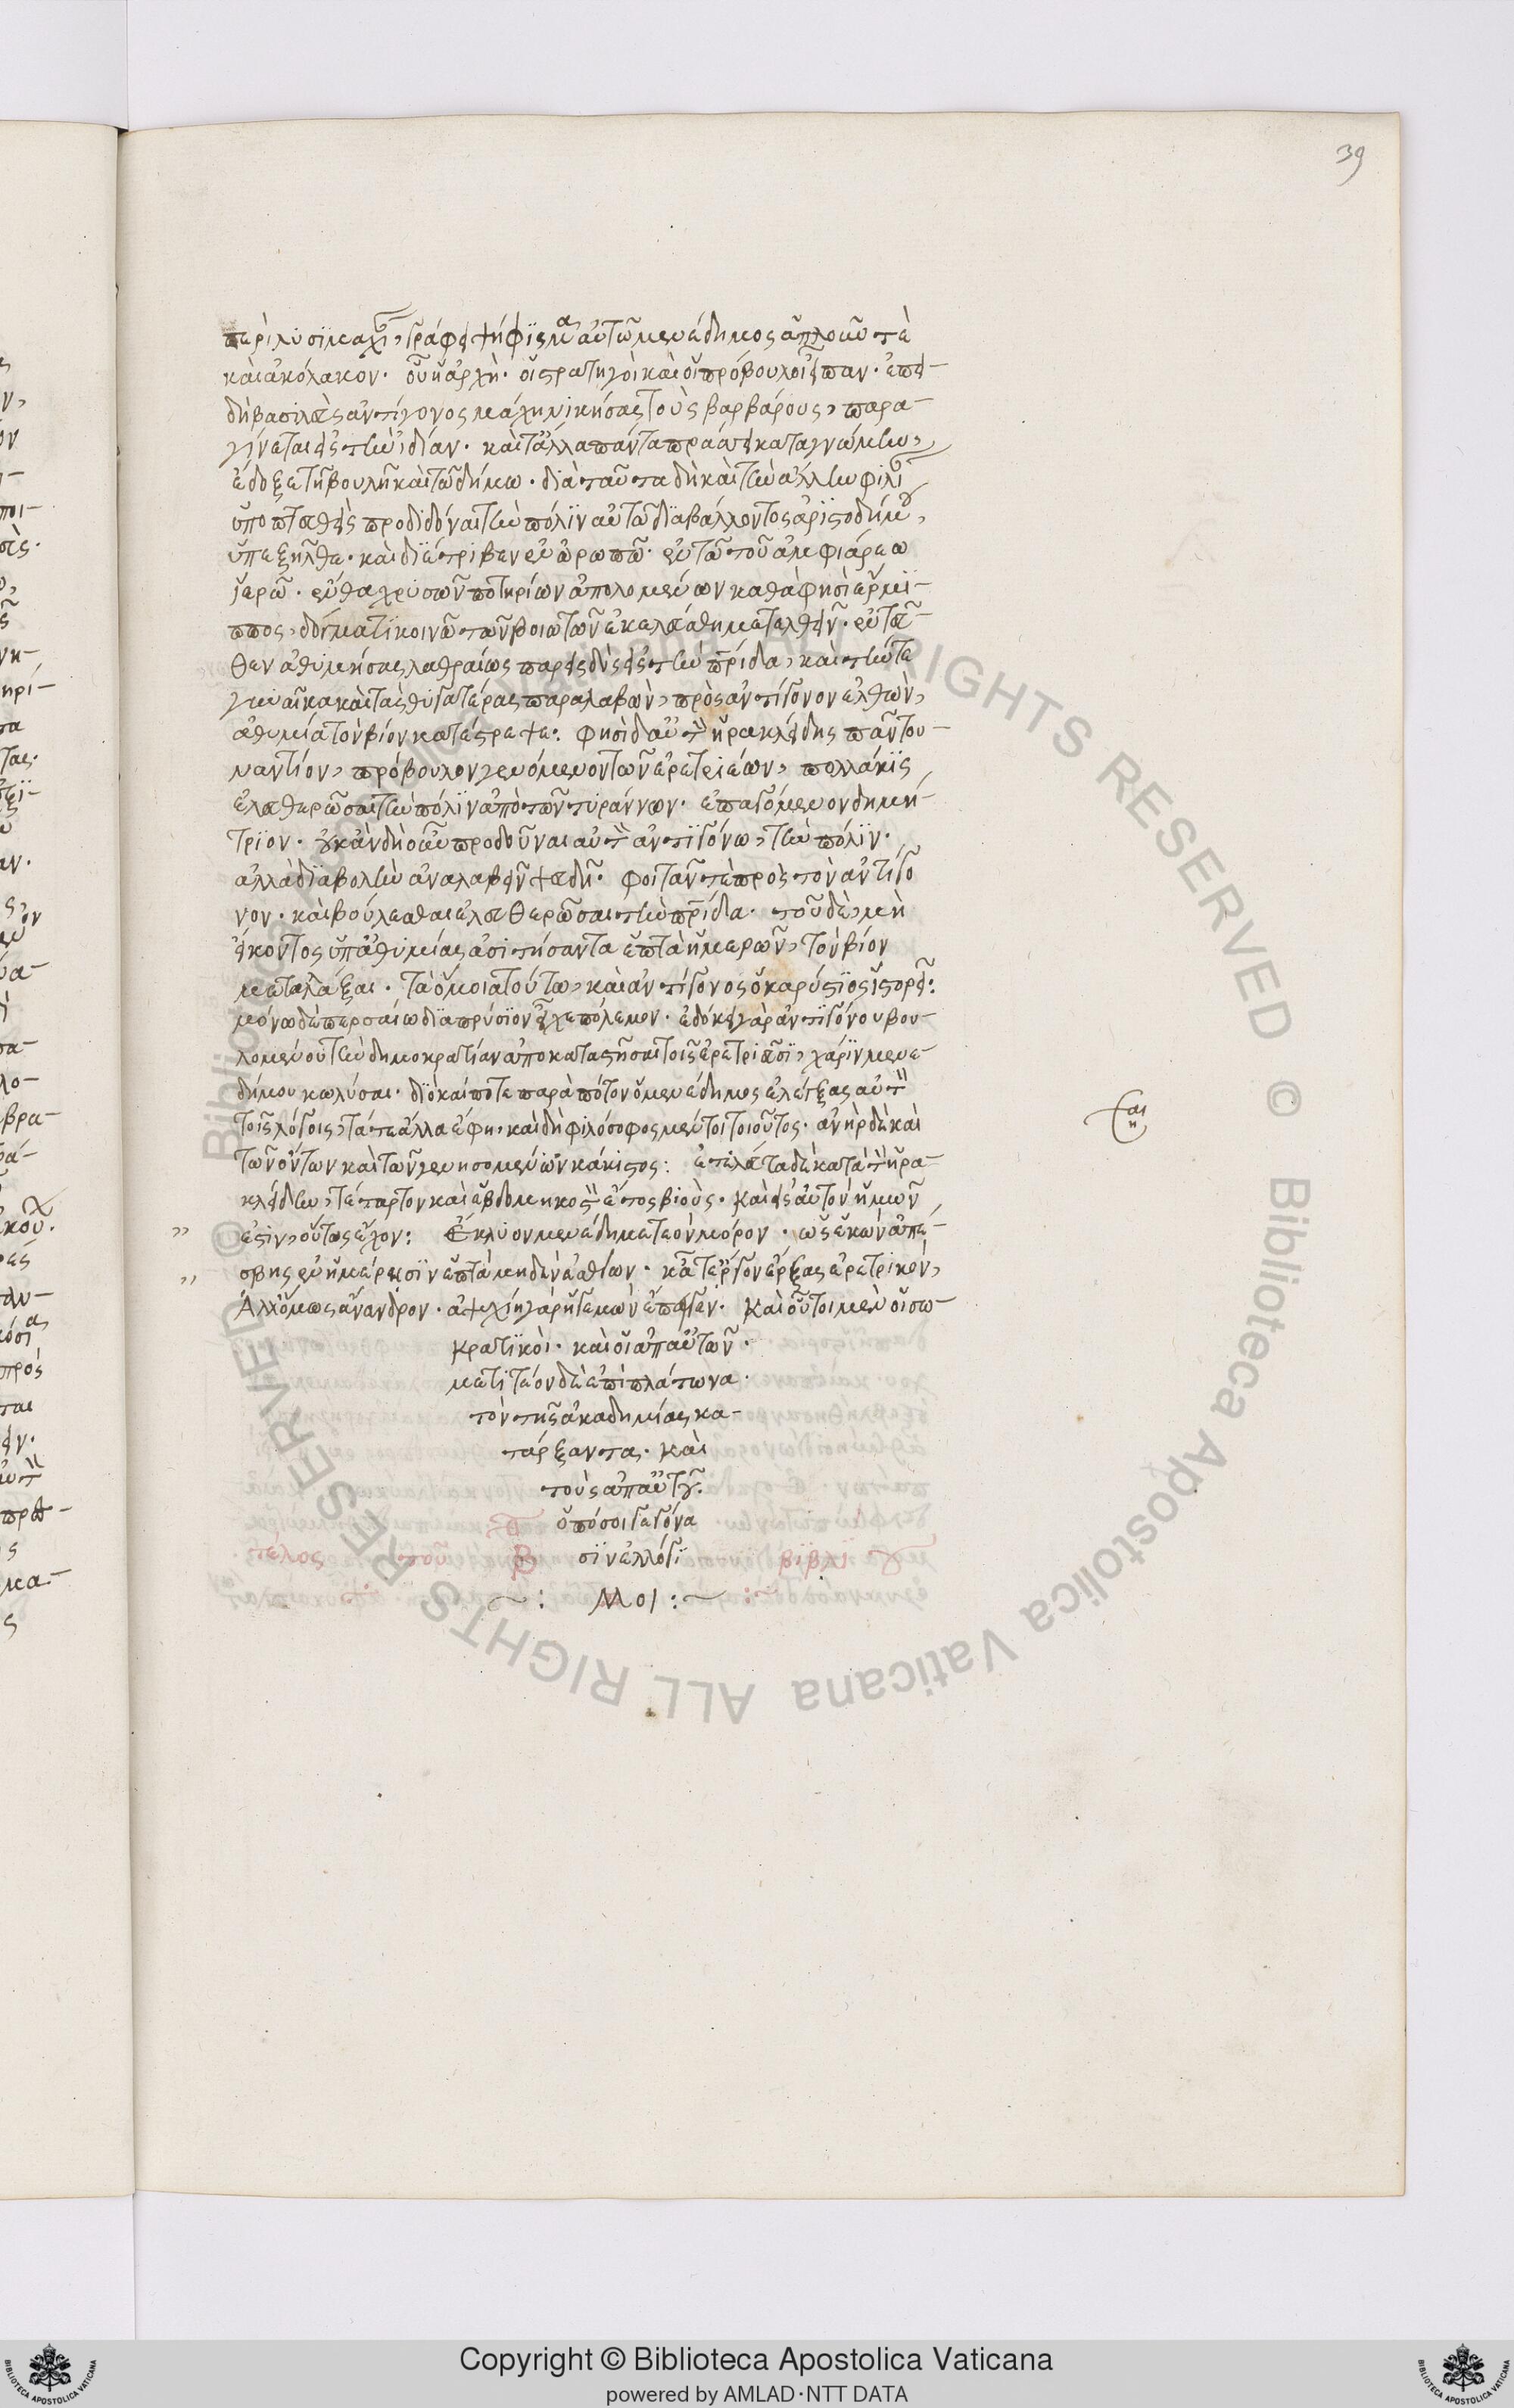 39
περὶ λυσιμαχίαν, γράφει ψήφισμα αὐτῷ μενέδημος ἁπλοῦν τὲ
καὶ ἀκόλακον. οὗ ἡ ἀρχὴ. οἱ στρατηγοὶ καὶ οἱ πρόβουλοι εἶπαν. ἐπει-
δὴ βασιλεὺς ἀντίγονος μάχη νικήσας τοὺς βαρβάρους, παρα-
γίνεται εἰς τὴν ἰδίαν. καὶ τἄλλα πάντα πράσσει κατα γνώμην,
ἔδοξε τῇ βουλῇ καὶ τῷ δήμω. διὰ ταῦτα δὴ καὶ τὴν ἄλλην φιλίαν
ὑποπτευθεὶς προδιδόναι τὴν πόλιν αὐτῷ διαβάλλοντος ἀριστοδήμου,
ὑπεξῆλθε. καὶ διέτριβεν ἐν ὠρωπῷ. ἐν τῷ τοῦ ἀμφιάρεω
ἱερῷ. ἔνθα χρυσῶν ποτηρίων ἀπολομένων καθὰ φησὶ ἑρμί-
ππος, δόγματι κοινῷ τῶν βοιωτῶν ἐκελεύσθη μετελθεῖν. ἐντεῦ-
θεν ἀθυμήσας λαθραίως παρεισδὺς εἰς τὴν πατρίδα, καὶ τήν τε
γυναῖκα καὶ τὰς θυγατέρας παραλαβὼν, πρὸς ἀντίγονον ἐλθὼν,
ἀθυμία τὸν βίον κατέστρεψε: φησὶ δ' αὐτὸν ἡρακλείδης πᾶν του-
ναντίον, πρόβουλον γενόμενον τῶν ἐρετριέων, πολλάκις
ἐλευθερῶσαι τὴν πόλιν ἀπὸ τῶν τυράννων. ἐπαγόμενον δημή-
τριον. οὐκ ἂν δὴ οὖν προδοῦναι αὐτὸν ἀντιγόνω, τὴν πόλιν.
ἀλλὰ διαβολὴν ἀναλαβεῖν ψευδῆ. φοιτᾶν τὲ πρὸς τὸν ἀντίγο
νον. καὶ βούλεσθαι ἐλευθερῶσαι τὴν πατρίδα. τοῦ δὲ μὴ
εἴκοντος ὑπ' ἀθυμίας ἀσιτήσαντα ἑπτὰ ἡμερῶν, τὸν βίον
μεταλλάξαι. τὰ ὅμοια τούτω, καὶ ἀντίγονος ὁ καρύστιος ἱστορεῖ:
μόνω δὲ περσαίω διαπρύσιον εἶχε πόλεμον. ἐδόκει γὰρ ἀντιγόνου βου-
λομένου τὴν δημοκρατίαν ἀποκαταστῆσαι τοῖς ἐρετριεῦσι, χάριν μενε-
δήμου κωλύσαι. διὸ καί ποτε παρὰ πότον ὁ μενέδημος ἐλέγξας αὐτὸν
τοῖς λόγοις, τά τε ἄλλα ἔφη, καὶ δὴ φιλόσοφος μέντοι τοιοῦτος. ἀνὴρ δὲ καὶ
τῶν ὄντων καὶ τῶν γενησομένων κάκιστος: ἐτελεύτα δὲ κατὰ τὸν ἡρα-
κλείδην, τέταρτον καὶ ἑβδομηκοστὸν ἔτος βιοὺς. καὶ εἰς αὐτὸν ἡμῶν
ἐστιν, οὕτως ἔχον: ἔκλυον μενέδημε τεὸν μόρον. ὡς ἑκὼν ἀπέ-
σβης ἐν ἡμέραισιν ἑπτὰ μηδὲν ἐσθίων. κᾆτ' ἔργον ἔρξας ἐρετρικόν,
Ἀλλ' ὅμως ἄνανδρον. ἀψυχίη γὰρ ἡγεμὼν ἔπειγεν. καὶ οὗτοι μὲν οἱ σω-
κρατικοὶ. καὶ οἱ ἀπ' αὐτῶν.
μετιτέον δὲ ἐπὶ πλάτωνα.
τὸν τῆς ἀκαδημίας κα-
τάρξαντα. καὶ
τοὺς ἀπ' αὐτοῦ.
ὁπόσοι γεγόνα
σιν ἐλλόγι
~ : μοι : ~